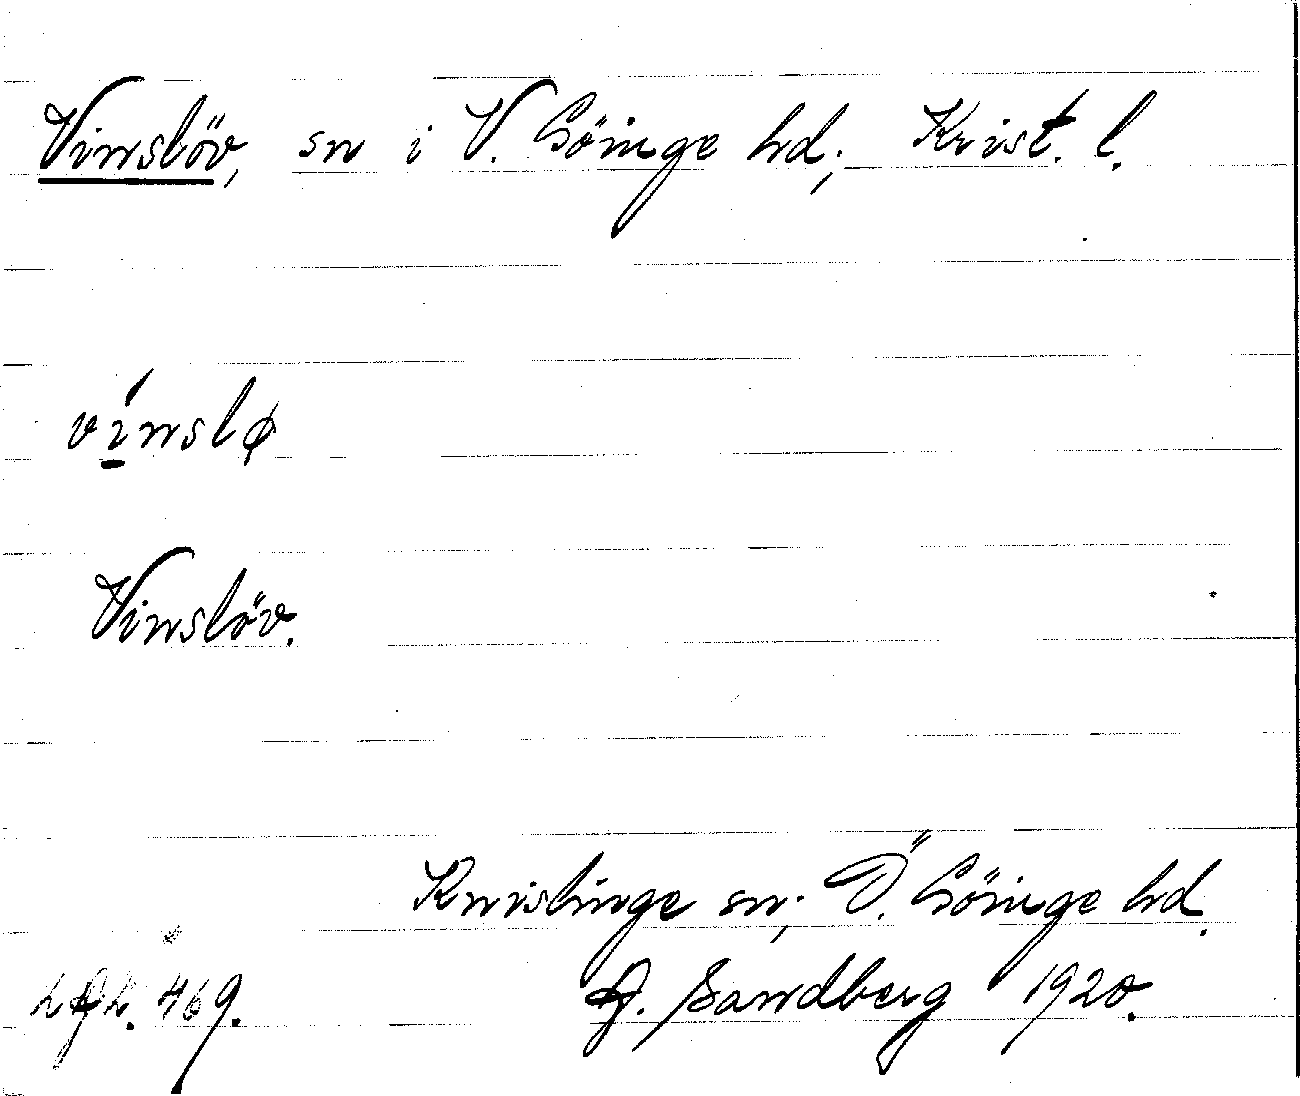 Vinslöv, sn i V. Göinge hd; Krist. l.
vínslø
Vinslöv.
Knislinge sn; Ö. Göinge hd.
469. A. Sandberg 1920.